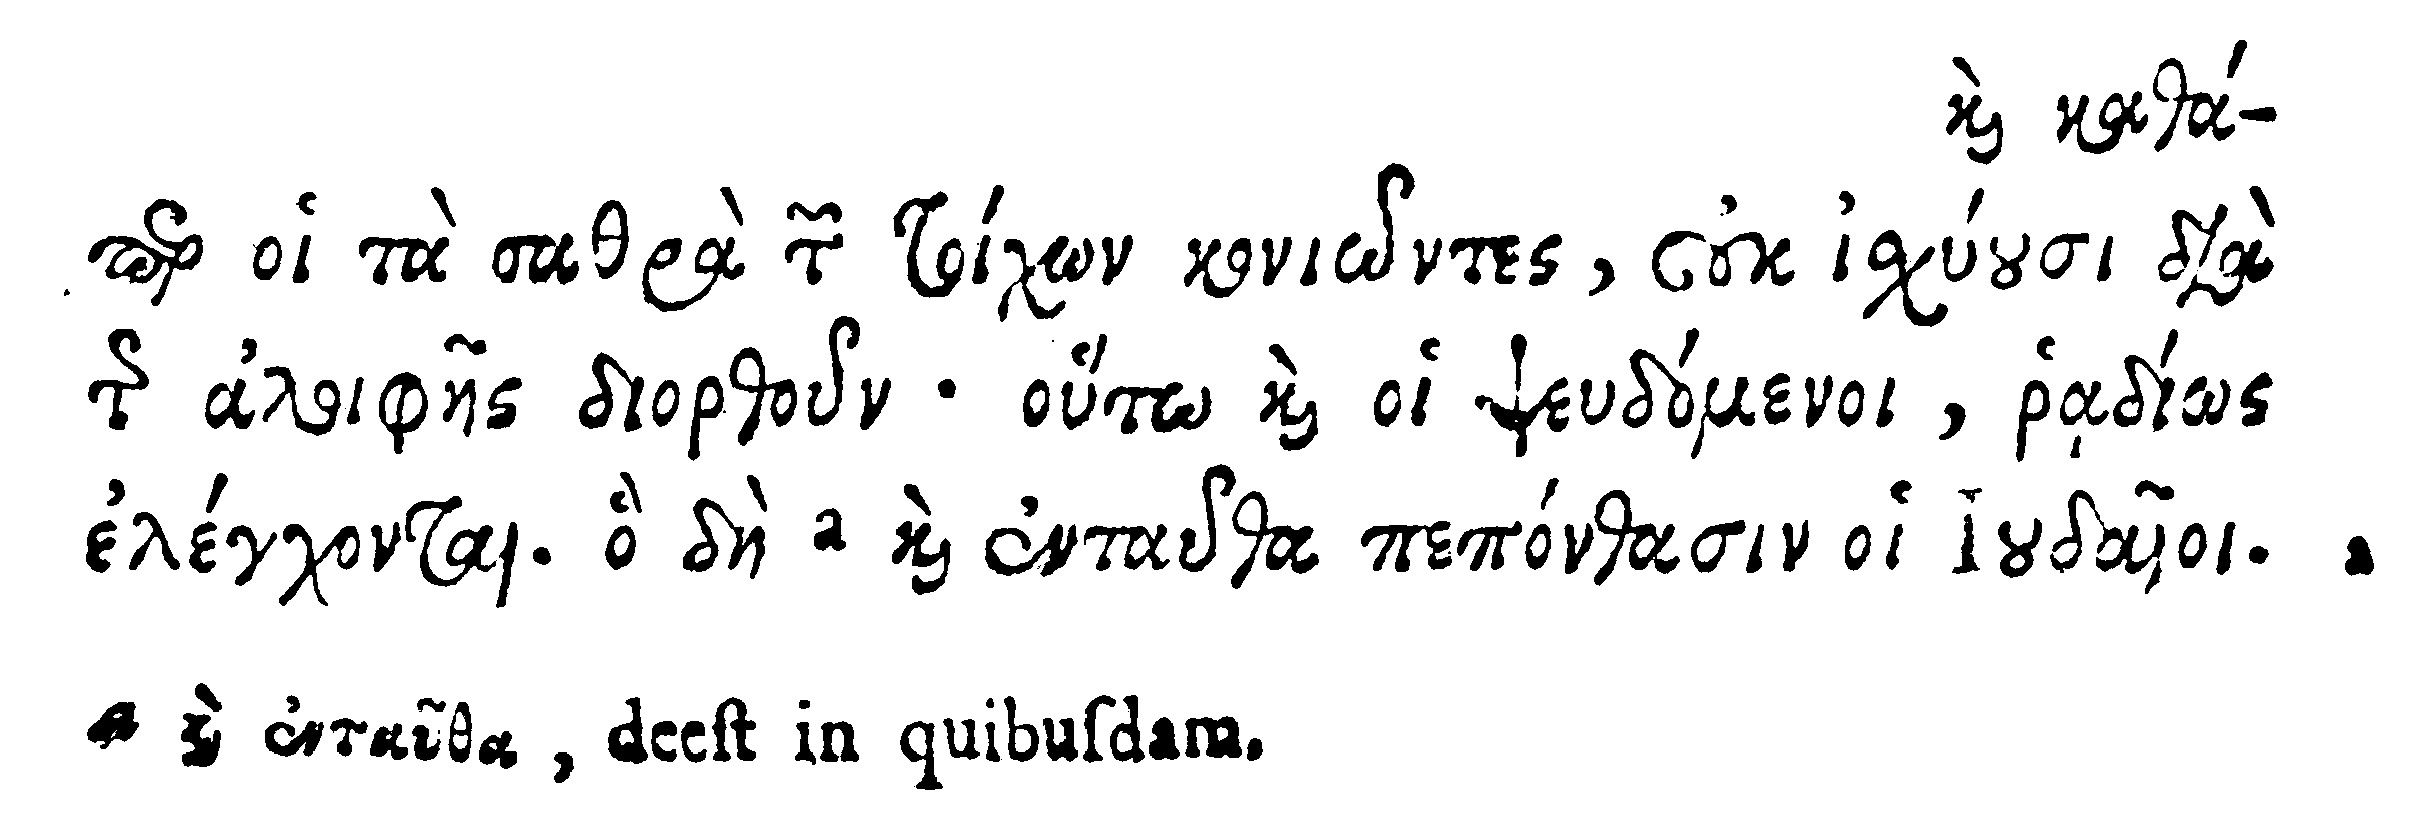 καὶ καθά-
περ οἱ τὰ σαθρὰ τῶν τοίχων κονιῶντες, οὐκ ἰσχύουσι διὰ
τῆς ἀλοιφῆς διορθοῦν · οὕτω καὶ οἱ ψευδόμενοι, ῥᾳδίως
ἐλέγχονται. ὃ δὴ a καὶ ἐνταῦθα πεπόνθασιν οἱ Ἰουδαῖοι. a
a καὶ ἐνταῦθα, deeſt in quibuſdam.